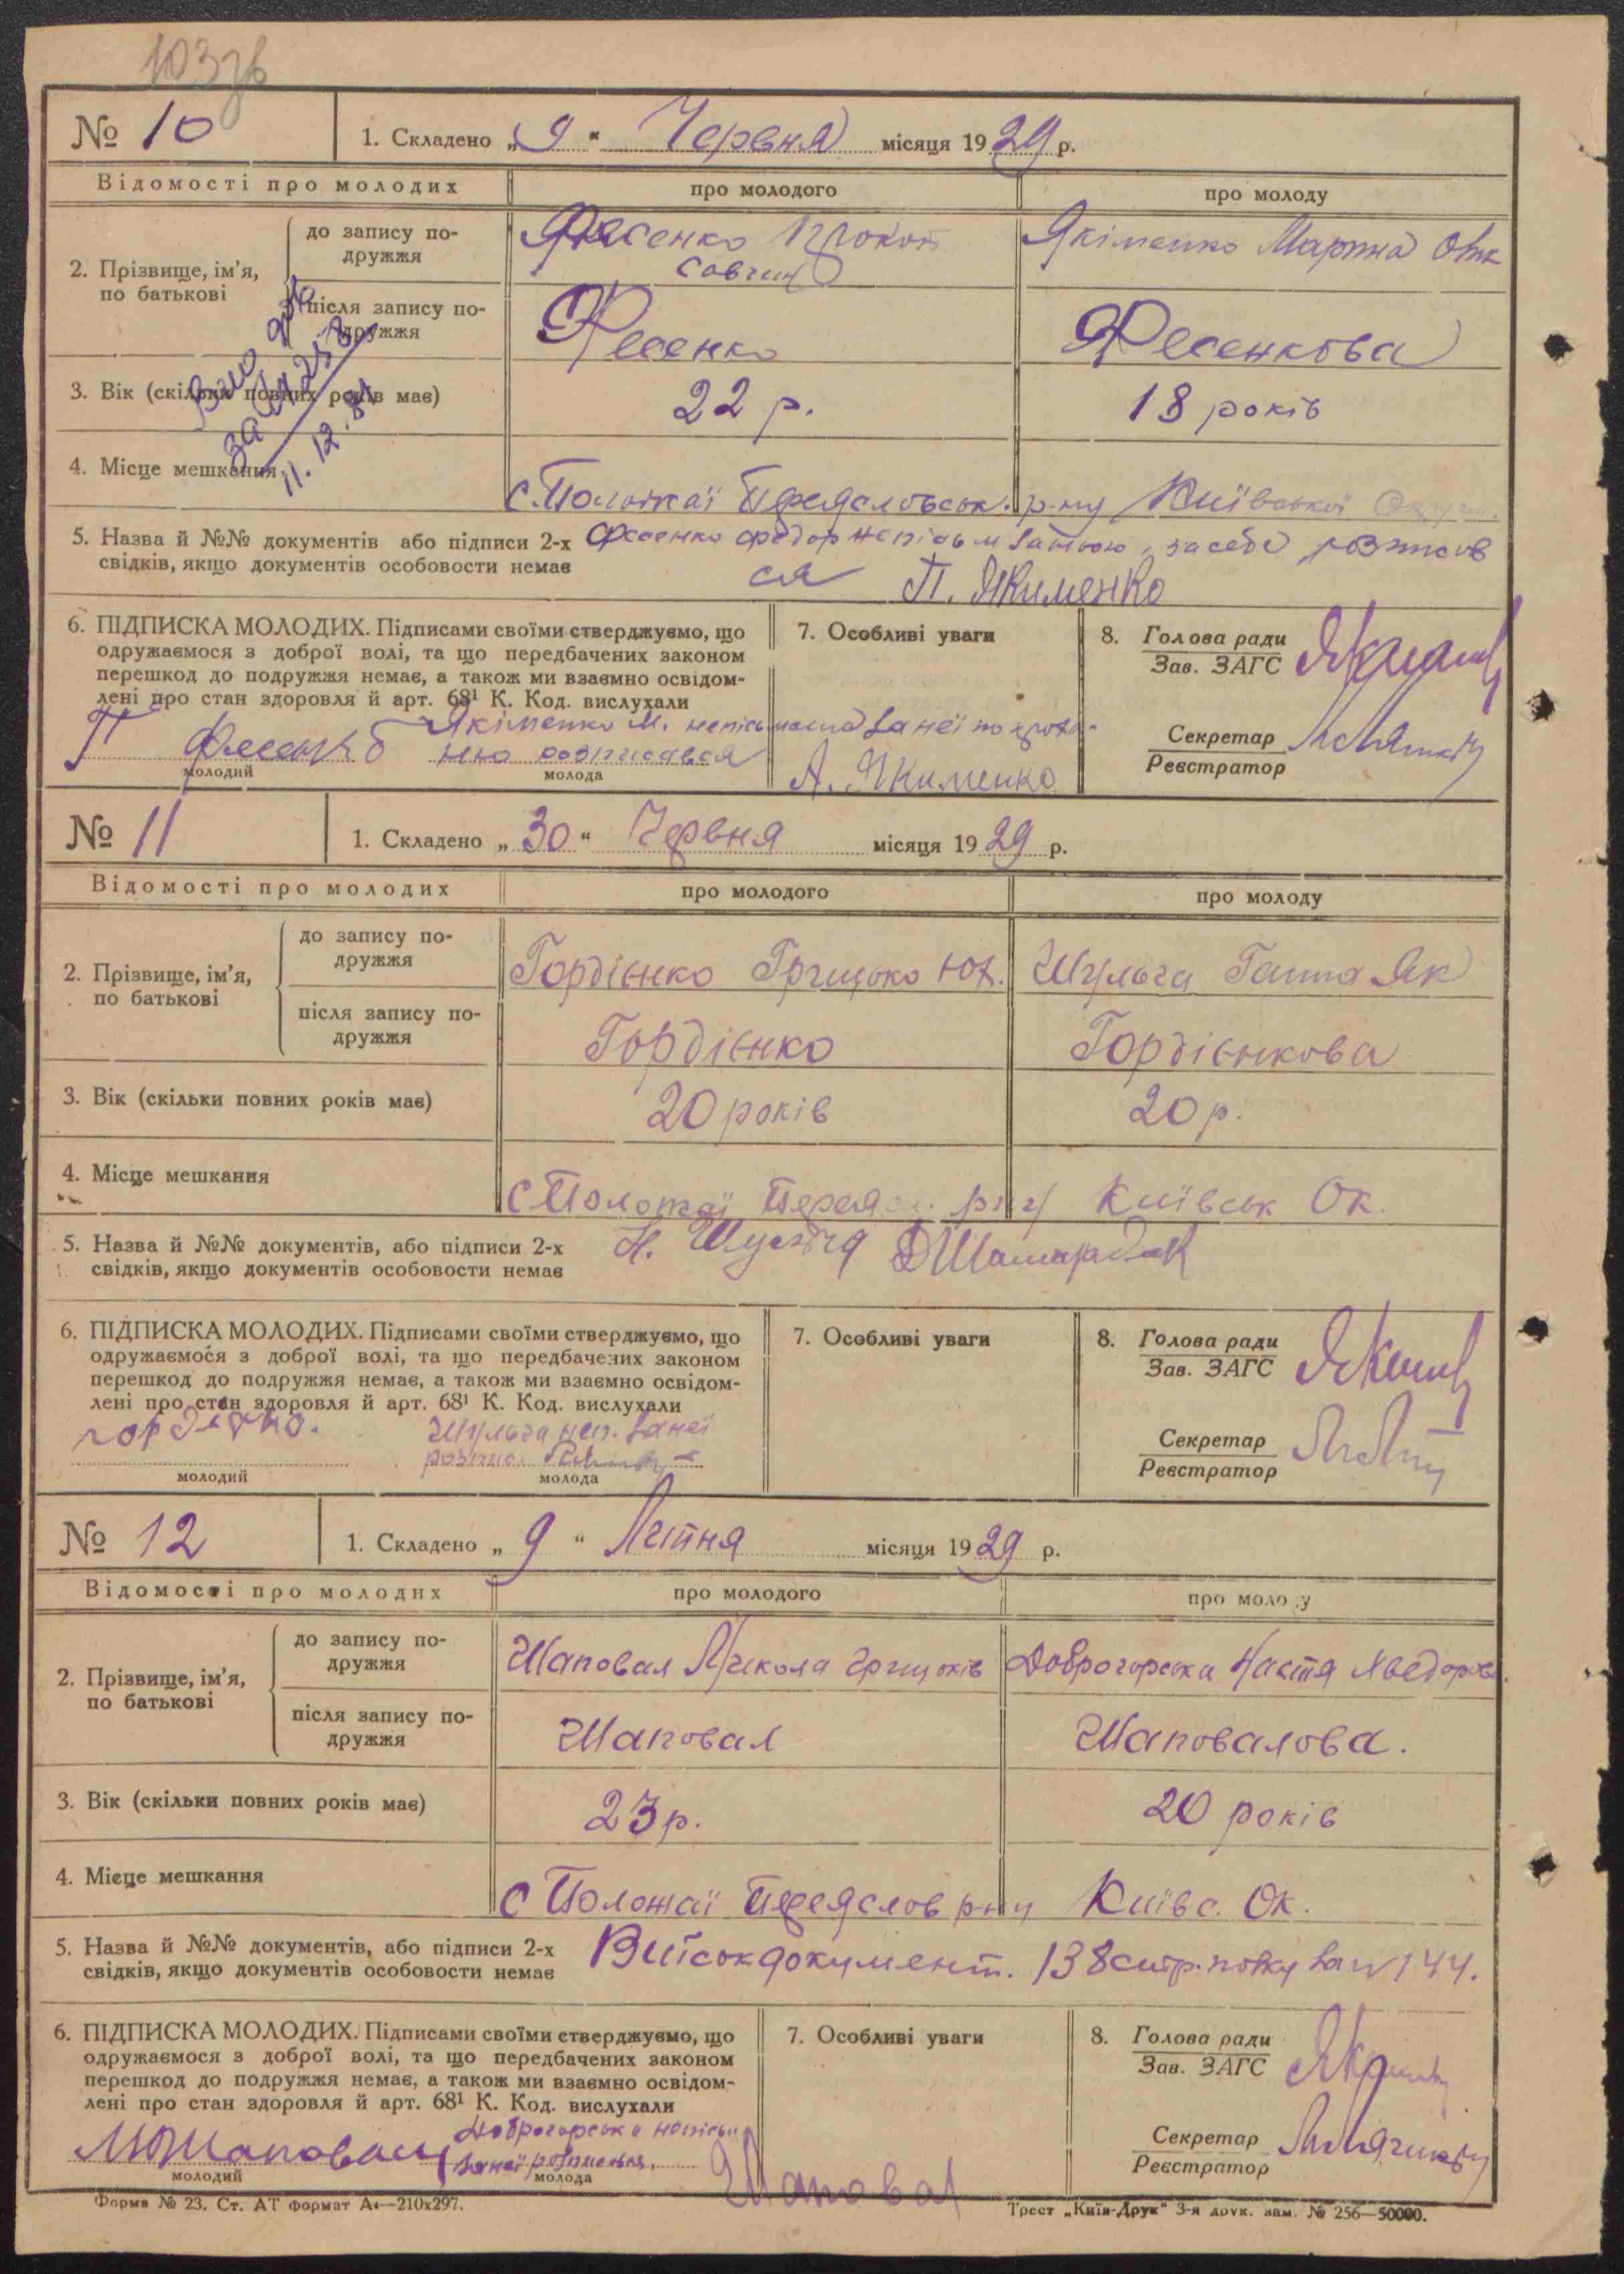 103зв
№ 10
1. Складено „ 9 “ Червня місяця 1929 р.
Відомості про молодих
про молодого
про молоду
2. Прізвище, ім'я, по батькові
до запису подружжя
Фесенко Прокоп
Савчин
Якіменко Марина Опк
після запису подружжя
Фесенко
Фесенкова
3. Вік (скільки повних років має)
22 р.
18 років
11.12.81
4. Місце мешкання
с. Положаї Переясловськ. р-ну Київської
5. Назва й №№ документів або підписи 2-х
свідків, якщо документів особовости немає
Фесенко Федор за себе розписов
ся П. Якименко
6. ПІДПИСКА МОЛОДИХ. Підписами своїми стверджуємо, що
одружаємося з доброї волі, та що передбачених законом
перешкод до подружжя немає, а також ми взаємно освідом-
лені про стан здоровля й арт. 68¹ К. Код. вислухали
П Фесенко
Якіменко М. за неї по проха-
нню розписався
А. Якименко
молодий
молода
7. Особливі уваги
8. Голова ради
Зав. ЗАГС
Секретар
Реєстратор
№ 11
1. Складено „ 30 “ Червня місяця 1929 р.
Відомості про молодих
про молодого
про молоду
2. Прізвище, ім'я, по батькові
до запису подружжя
Гордієнко Грицько Юх.
Шульга Ганна Як
після запису подружжя
Гордієнко
Гордієнкова
3. Вік (скільки повних років має)
20 років
20 р.
4. Місце мешкання
с Положаї Переясл. р-ну Київськ Ок.
5. Назва й №№ документів, або підписи 2-х
свідків, якщо документів особовости немає
Н. Шульга
6. ПІДПИСКА МОЛОДИХ. Підписами своїми стверджуємо, що
одружаємося з доброї волі, та що передбачених законом
перешкод до подружжя немає, а також ми взаємно освідом-
лені про стан здоровля й арт. 68¹ К. Код. вислухали
Шульга неп. за неї
молодий
молода
7. Особливі уваги
8. Голова ради
Зав. ЗАГС
Секретар
Реєстратор
№ 12
1. Складено „ 9 “ Липня місяця 1929 р.
Відомості про молодих
про молодого
про моло.у
2. Прізвище, ім'я, по батькові
до запису подружжя
Шаповал Микола Грицьків
Доброгорська Настя Хведорів.
після запису подружжя
Шаповал
Шаповалова.
3. Вік (скільки повних років має)
23 р.
20 років
4. Місце мешкання
с Положаї Переяслов р-ну Київс. Ок.
5. Назва й №№ документів, або підписи 2-х
свідків, якщо документів особовости немає
документ. 138 стр. за № 144.
6. ПІДПИСКА МОЛОДИХ. Підписами своїми стверджуємо, що
одружаємося з доброї волі, та що передбачених законом
перешкод до подружжя немає, а також ми взаємно освідом-
лені про стан здоровля й арт. 68¹ К. Код. вислухали
Доброгорська
за неї
Шаповал
молодий
молода
7. Особливі уваги
8. Голова ради
Зав. ЗАГС
Секретар
Реєстратор
Форма № 23. Ст. АТ формат А4—210х297.
Трест „Київ-Друк“ 3-я друк. зам. № 256—50000.